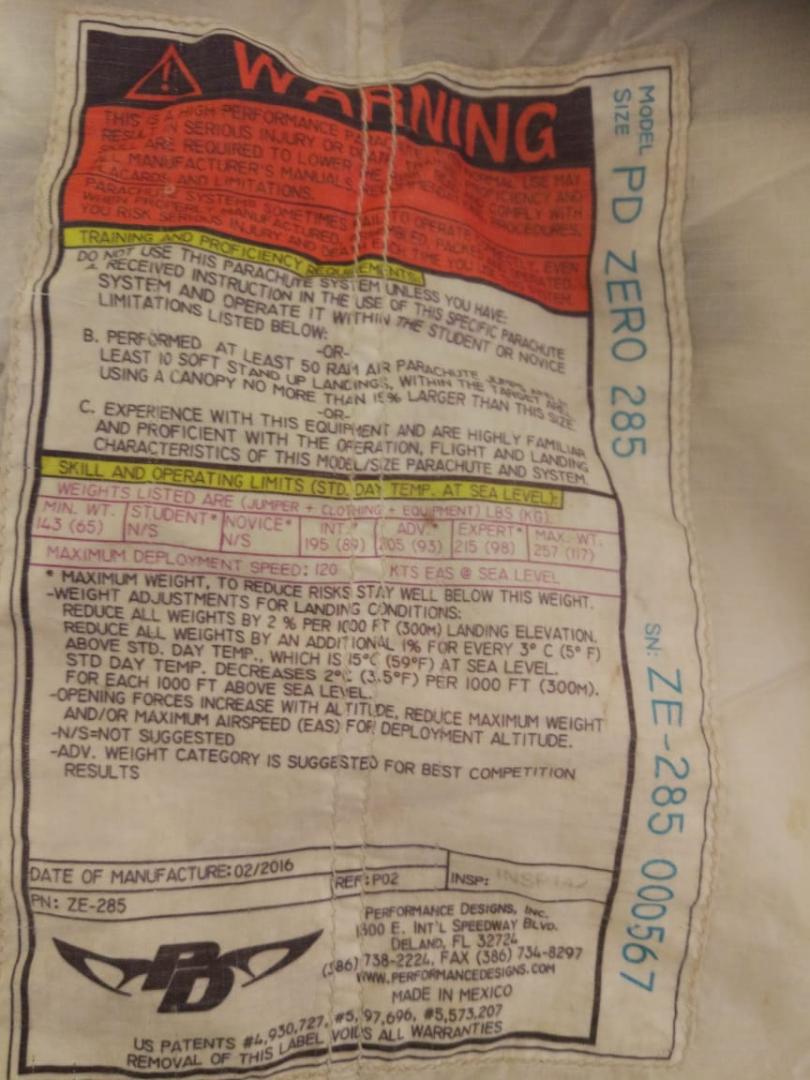 WARNING
THIS IS A HIGH PERFORMANCE NORMAL USE MAY
RESULT IN SERIOUS INJURY OR DEATH. PROFICIENCY AND
SKILL ARE REQUIRED TO LOWER THE RISK. COMPLY WITH
ALL MANUFACTURER'S MANUALS, RECOMMENDED PROCEDURES,
PLACARDS AND LIMITATIONS.
PARACHUTE SYSTEMS SOMETIMES FAIL TO OPERATE CORRECTLY, EVEN
WHEN PROPERLY MANUFACTURED, ASSEMBLED, PACKED OPERATED.
YOU RISK SERIOUS INJURY AND DEATH EACH TIME YOU USE SYSTEM.
TRAINING AND PROFICIENCY REQUIREMENTS:
DO NOT USE THIS PARACHUTE SYSTEM UNLESS YOU HAVE:
RECEIVED INSTRUCTION IN THE USE OF THIS SPECIFIC PARACHUTE
SYSTEM AND OPERATE IT WITHIN THE STUDENT OR NOVICE
LIMITATIONS LISTED BELOW:
-OR-
B. PERFORMED AT LEAST 50 RAM AIR PARACHUTE
LEAST 10 SOFT STAND UP LANDINGS, WITHIN THE TARGET
USING A CANOPY NO MORE THAN 15% LARGER THAN THIS SIZE.
-OR-
C. EXPERIENCE WITH THIS EQUIPMENT AND ARE HIGHLY FAMILIAR
AND PROFICIENT WITH THE OPERATION, FLIGHT AND LANDING
CHARACTERISTICS OF THIS MODEL/SIZE PARACHUTE AND SYSTEM.
SKILL AND OPERATING LIMITS (STD. DAY TEMP. AT SEA LEVEL):
WEIGHTS LISTED ARE (JUMPER + CLOTHING + EQUIPMENT) LBS (KG).
MIN. WT. STUDENT* NOVICE* INT.* ADV.* EXPERT* MAX. WT.
143 (65) N/S N/S 195 (89) 205 (93) 215 (98) 257 (117)
MAXIMUM DEPLOYMENT SPEED: 120 KTS EAS @ SEA LEVEL
* MAXIMUM WEIGHT, TO REDUCE RISKS STAY WELL BELOW THIS WEIGHT.
-WEIGHT ADJUSTMENTS FOR LANDING CONDITIONS:
REDUCE ALL WEIGHTS BY 2 % PER 1000 FT (300M) LANDING ELEVATION.
REDUCE ALL WEIGHTS BY AN ADDITIONAL 1% FOR EVERY 3° C (5° F)
ABOVE STD. DAY TEMP., WHICH IS 15°C (59°F) AT SEA LEVEL.
STD DAY TEMP. DECREASES 2°C (3.5°F) PER 1000 FT (300M).
FOR EACH 1000 FT ABOVE SEA LEVEL.
-OPENING FORCES INCREASE WITH ALTITUDE, REDUCE MAXIMUM WEIGHT
AND/OR MAXIMUM AIRSPEED (EAS) FOR DEPLOYMENT ALTITUDE.
-N/S=NOT SUGGESTED
-ADV. WEIGHT CATEGORY IS SUGGESTED FOR BEST COMPETITION
RESULTS
DATE OF MANUFACTURE: 02/2016 REF: P02 INSP:
PN: ZE-285
PD
PERFORMANCE DESIGNS, INC.
1300 E. INT'L SPEEDWAY BLVD.
DELAND, FL 32724
(386) 738-2224, FAX (386) 734-8297
WWW.PERFORMANCEDESIGNS.COM
MADE IN MEXICO
US PATENTS #4,930,727, #5, 97,696, #5,573,207
REMOVAL OF THIS LABEL VOIDS ALL WARRANTIES
MODEL
SIZE
PD ZERO 285
SN: ZE-285 000567